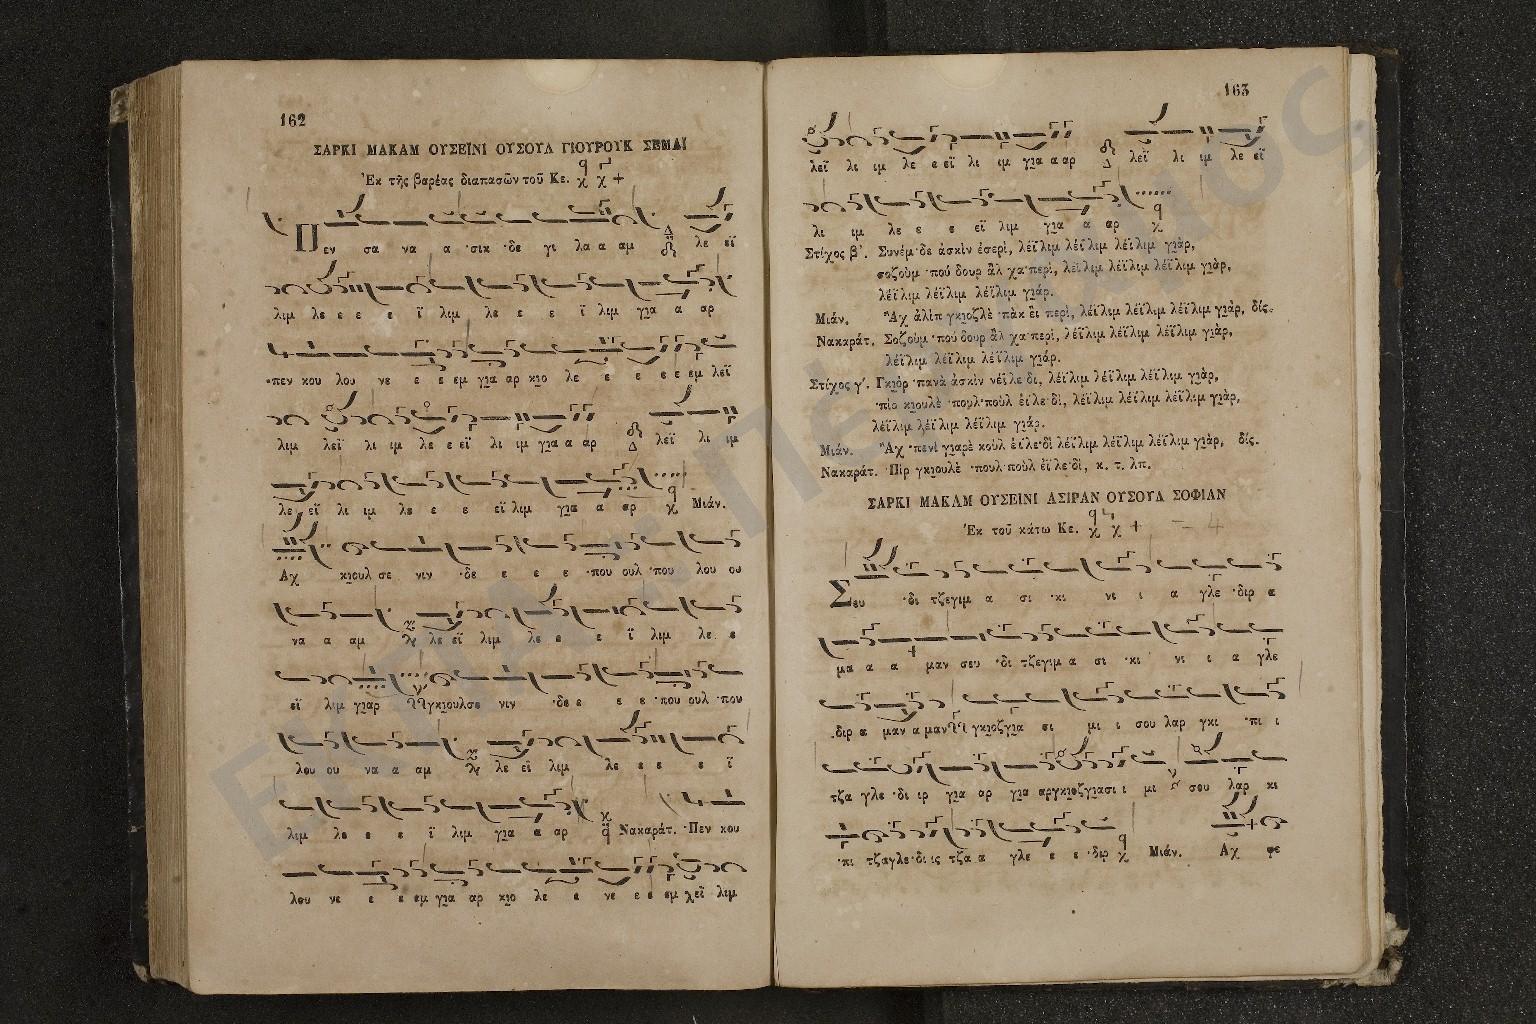 162
ΣΑΡΚΙ ΜΑΚΑΜ ΟΥΣΕΪΝΙ ΟΥΣΟΥΛ ΓΙΟΥΡΟΥΚ ΣΕΜΑΪ
Ἐκ τῆς βαρέας διαπασῶν τοῦ Κε.
Πεν σα να α ·σικ ·δε γι λα α αμ λε εϊ
λιμ λε ε ε ε ϊ λιμ λε ε ε ϊ λιμ για α αρ
·πεν κου λου νε ε ε εμ για αρ κιο λε ε ε ε ε εμ λεϊ
λιμ λεϊ λι ιμ λε ε εϊ λι ιμ για α αρ λεϊ λι ιμ
λε εϊ λι ιμ λε ε ε εϊ λιμ για α αρ Μιάν.
Αχ κιουλ σε νιν ·δε ε ε ε ·που ουλ ·που λου ου
να α αμ λε εϊ λιμ λε ε ε ϊ λιμ λε ε
εϊ λιμ γιαρ γκιουλσε νιν ·δε ε ε ε ·που ουλ ·που
λου ου να α αμ λε εϊ λιμ λε ε ε ε ϊ
λιμ λε ε ε ϊ λιμ για α αρ Νακαράτ. ·Πεν κου
λου νε ε ε εμ για αρ κιο λε ε νε ε ε εμ λεϊ λιμ
163
λεϊ λι ιμ λε ε εϊ λι ιμ για α αρ λεϊ λι ιμ λε εϊ
λι ιμ λε ε ε εϊ λιμ για α αρ
Στίχος β΄. Συνέμ·δε ἀσκὶν ἐσερὶ, λέϊ λιμ λέϊ λιμ λέϊ λιμ γιὰρ,
σοζοὺμ ·ποὺ δουρ ἂλ χα·περὶ, λέϊ λιμ λέϊ λιμ λέϊ λιμ γιὰρ,
λέϊ λιμ λέϊ λιμ λέϊ λιμ γιάρ.
Μιάν. Ἂχ ἀλὶπ γκιοζλὲ ·πὰκ ἒι περὶ, λέϊ λιμ λέϊ λιμ λέϊ λιμ γιὰρ, δίς.
Νακαράτ. Σοζοὺμ ·ποὺ δουρ ἂλ χα·περὶ, λέϊ λιμ λέϊ λιμ λέϊ λιμ γιὰρ,
λέϊ λιμ λέϊ λιμ λέϊ λιμ γιάρ.
Στίχος γ΄. Γκιὸρ ·πανὰ ἀσκὶν νέϊ λε δι, λέϊ λιμ λέϊ λιμ λέϊ λιμ γιὰρ,
·πὶρ κιουλὲ ·πουλ·ποὺλ ἐϊ·λε·δὶ, λέϊ λιμ λέϊ λιμ λέϊ λιμ γιὰρ,
λέϊ λιμ λέϊ λιμ λέϊ λιμ γιάρ.
Μιάν. Ἂχ ·πενὶ γιαρὲ κοὺλ ἐϊ·λε·δὶ λέϊ λιμ λέϊ λιμ λέϊ λιμ γιὰρ, δίς.
Νακαράτ. ·Πὶρ γκιουλὲ ·πουλ·ποὺλ ἐϊ·λε·δὶ, κ. τ. λπ.
ΣΑΡΚΙ ΜΑΚΑΜ ΟΥΣΕΪΝΙ ΑΣΙΡΑΝ ΟΥΣΟΥΛ ΣΟΦΙΑΝ
Ἐκ τοῦ κάτω Κε.
Σευ ·δι τζεγιμ α σι ·κι νι ι α γλε ·διρ α
μα α α μαν σευ ·δι τζεγιμ α σι ·κι νι ι α γλε
·διρ α μαν α μαν γκιοζγια σι μι ι σου λαρ γκι ·πι ι
τζα γλε ·δι ιρ για αρ για αργκιοζγιασι ι μι σου λαρ κι
·κι τζαγλε·δι ις τζα α γλε ε ε ·διρ Μιάν. Αχ φε